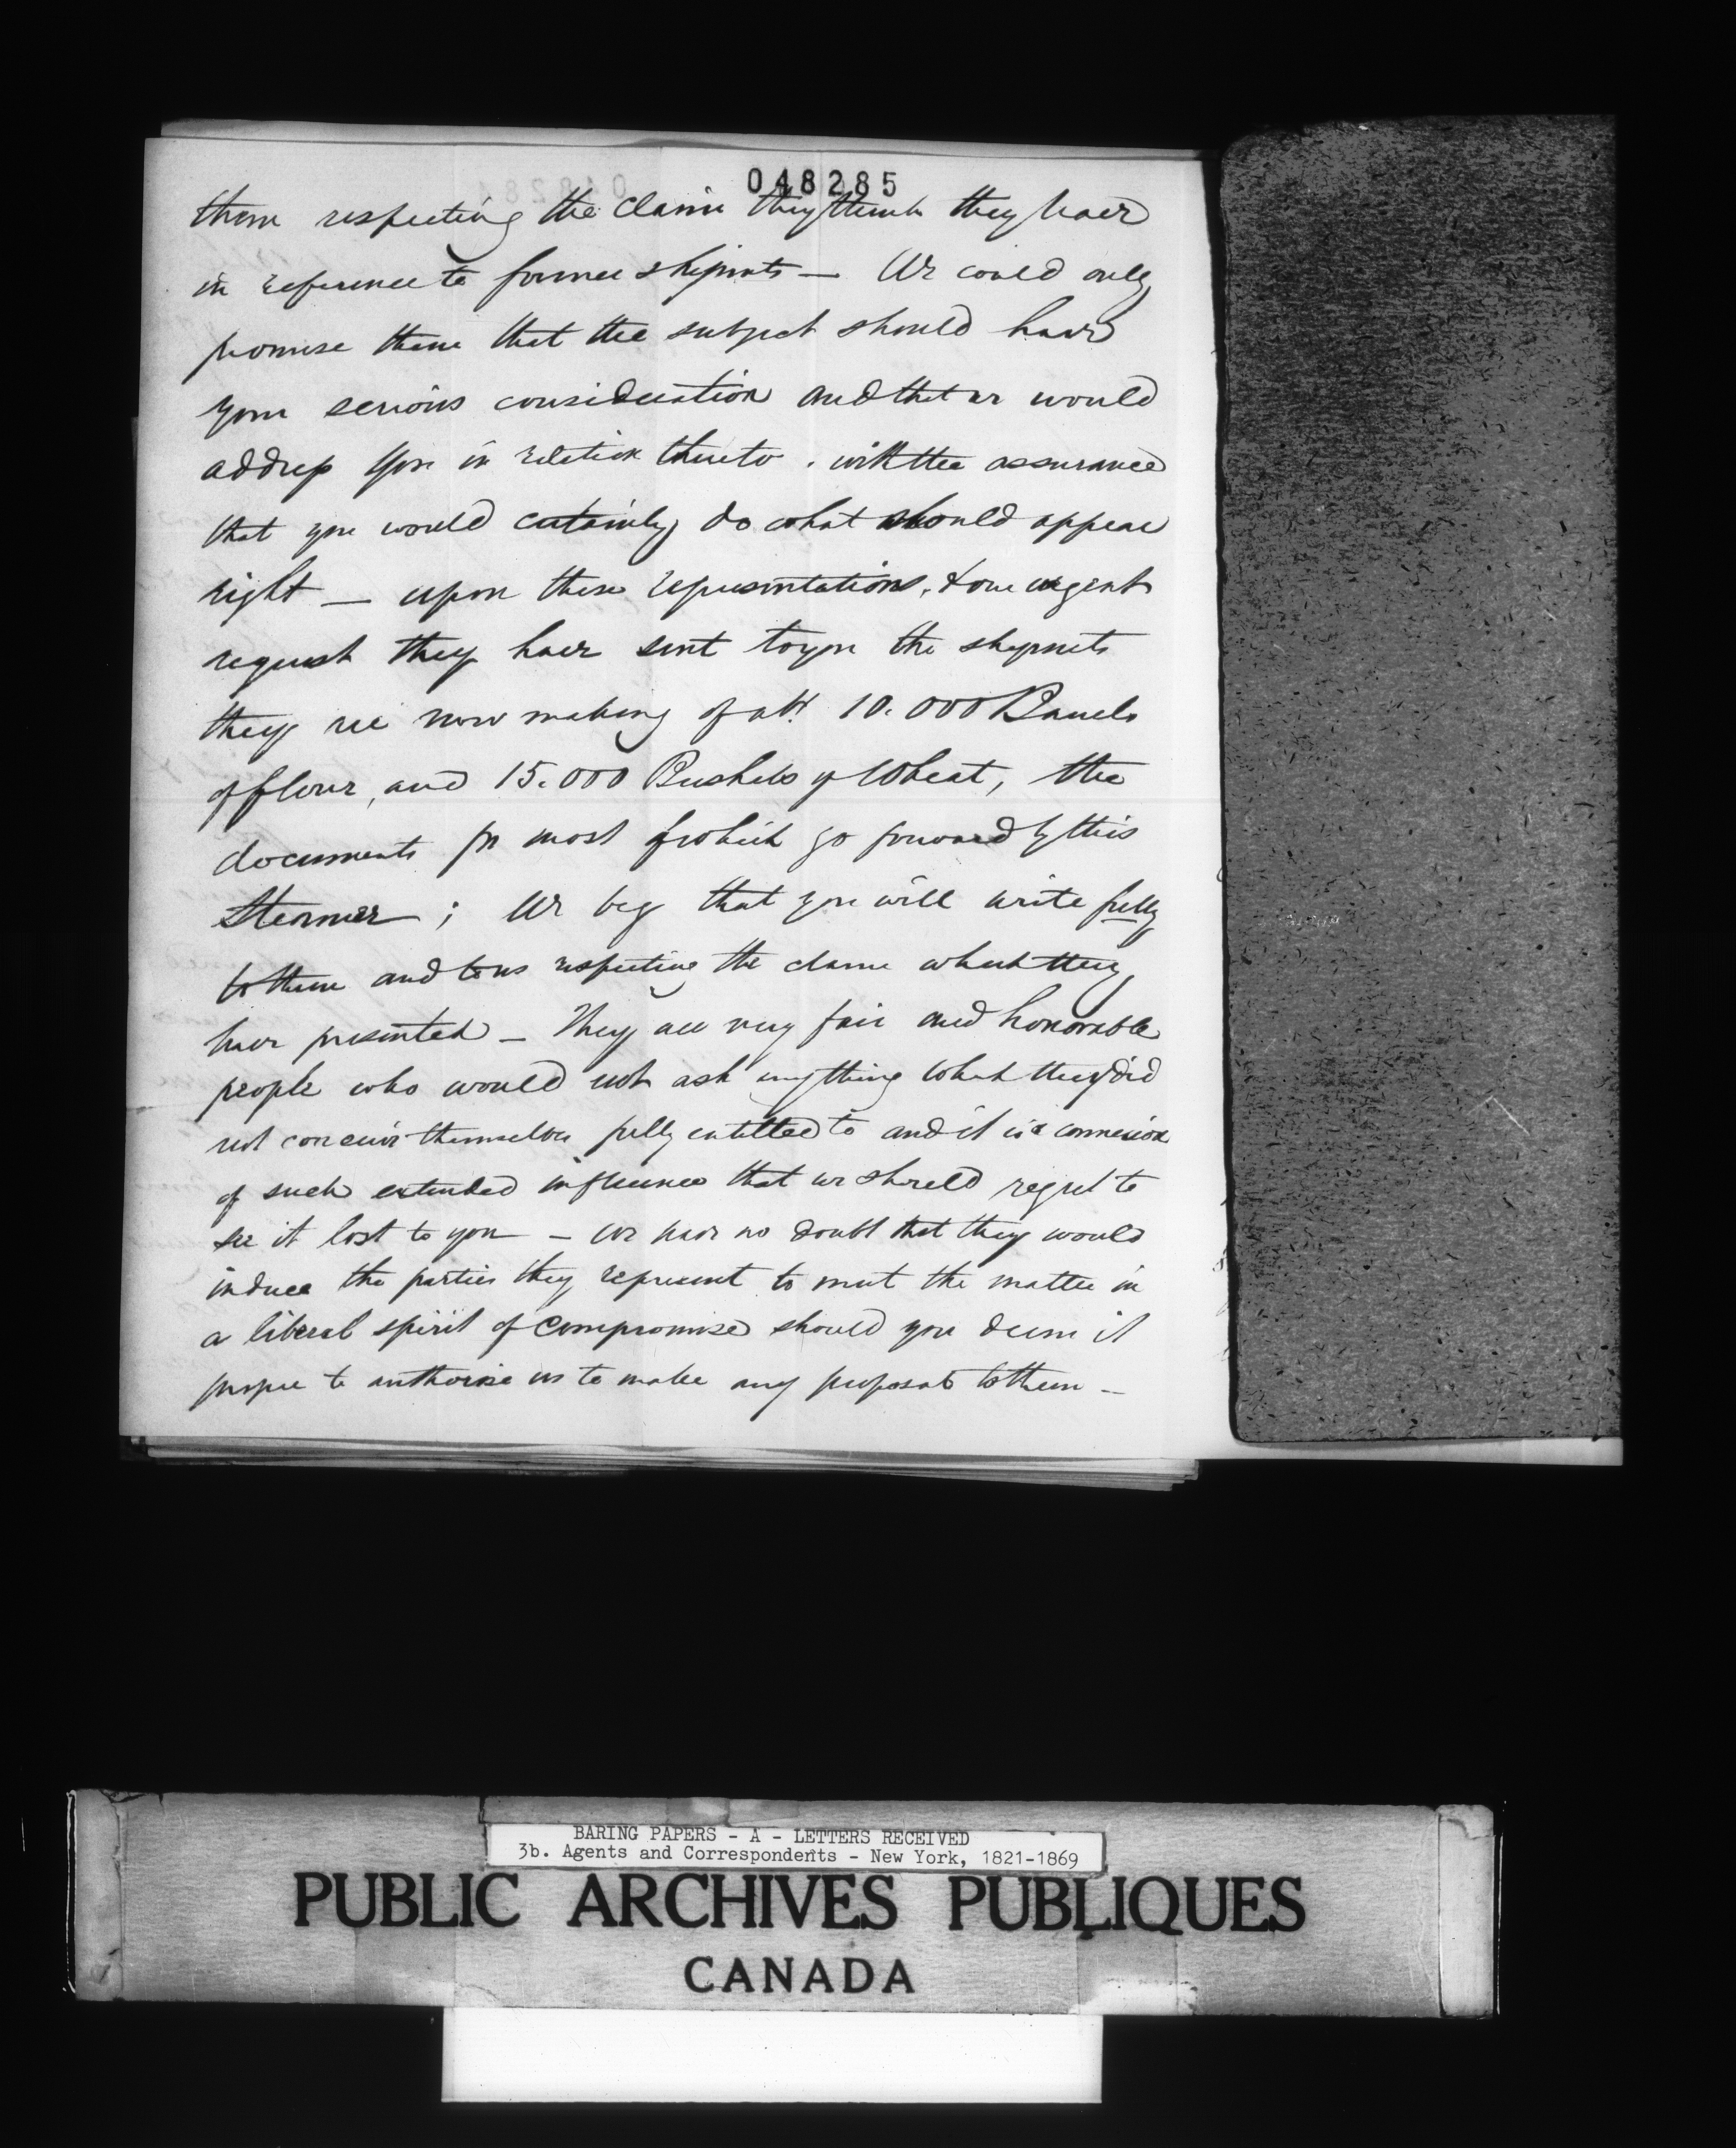 048285
them respecting the claim they think they have
in reference to former shipmts — We could only
promise them that the subject should have
your serious consideration and that we would
address you in relation thereto. with the assurance
that you would certainly do what should appear
right — upon these representations, & our urgent
request they have sent to you the shipmets
they are now making of abt 10.000 Barrels
of flour, and 15.000 Bushels of Wheat, the
documents for most of which go forward by this
Steamer ; We beg that you will write fully
to them and to us respecting the claim which they
have presented — They are very fair and honorable
people who would not ask anything which they did
not conceive themselves fully entitled to and it is a connexion
of such extended influence that we should regret to
see it lost to you — We have no doubt that they would
induce the parties they represent to meet the matter in
a liberal spirit of compromise should you deem it
proper to authorise us to make any proposal to them —
BARING PAPERS - A - LETTERS RECEIVED
3b. Agents and Correspondents - New York, 1821-1869
PUBLIC ARCHIVES PUBLIQUES
CANADA